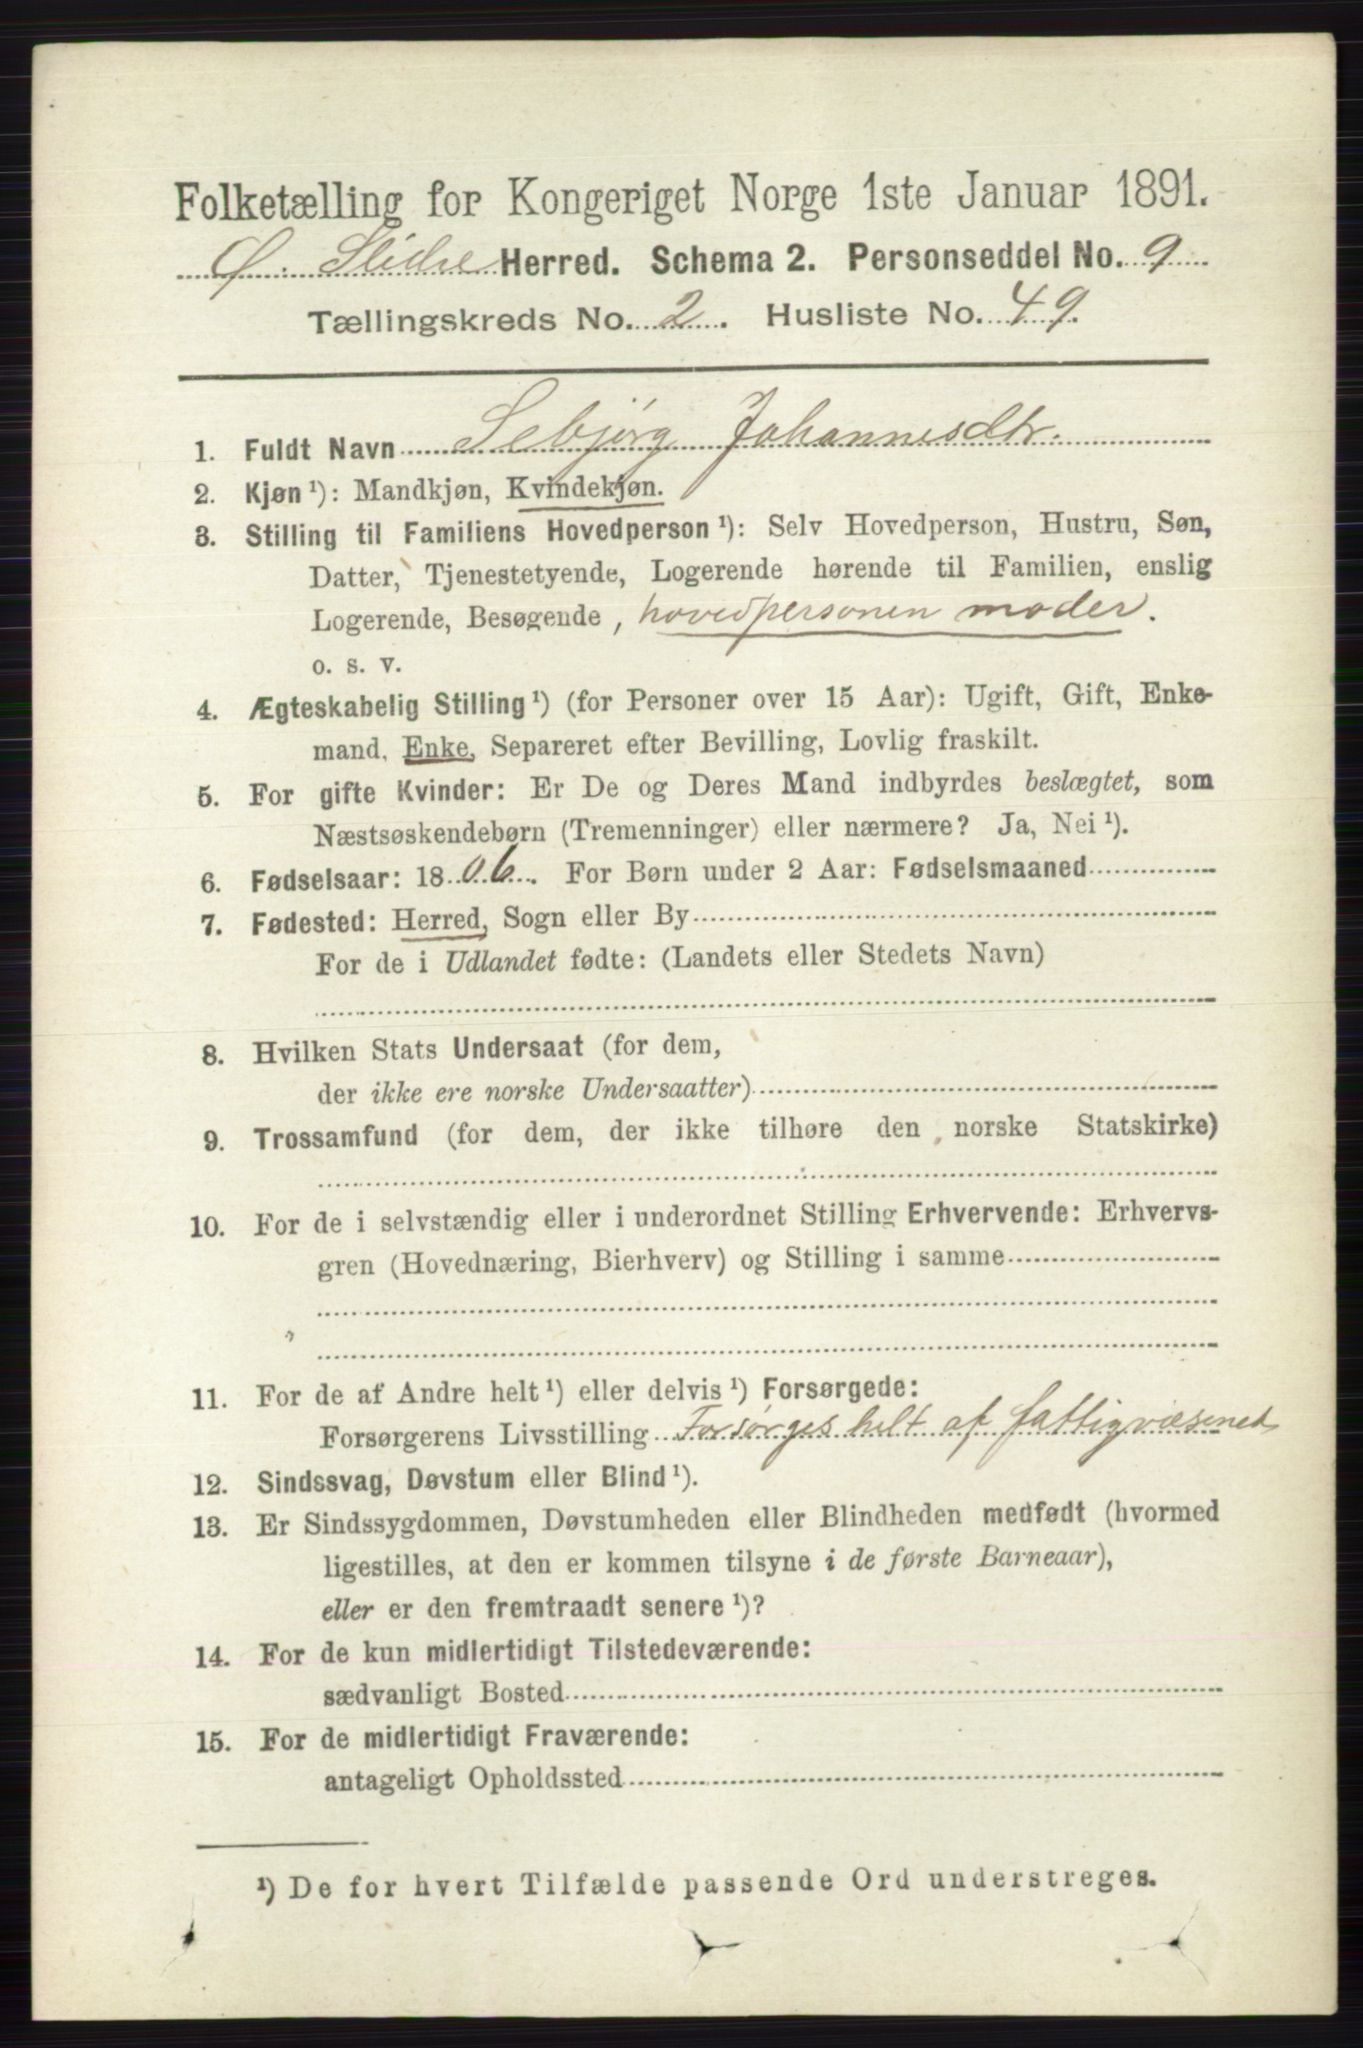 Folketælling for Kongeriget Norge 1ste Januar 1891.
Ø. Slidre Herred. Schema 2. Personseddel No. 9
Tællingskreds No. 2. Husliste No. 49.
1. Fuldt Navn Sebjørg Johannesdtr.
2. Kjøn ¹): Mandkjøn, Kvindekjøn.
3. Stilling til Familiens Hovedperson ¹): Selv Hovedperson, Hustru, Søn,
Datter, Tjenestetyende, Logerende hørende til Familien, enslig
Logerende, Besøgende, hovedpersonen moder.
o. s. v.
4. Ægteskabelig Stilling ¹) (for Personer over 15 Aar): Ugift, Gift, Enke-
mand, Enke, Separeret efter Bevilling, Lovlig fraskilt.
5. For gifte Kvinder: Er De og Deres Mand indbyrdes beslægtet, som
Næstsøskendebørn (Tremenninger) eller nærmere? Ja, Nei ¹).
6. Fødselsaar: 1806. For Børn under 2 Aar: Fødselsmaaned
7. Fødested: Herred, Sogn eller By
For de i Udlandet fødte: (Landets eller Stedets Navn)
8. Hvilken Stats Undersaat (for dem,
der ikke ere norske Undersaatter)
9. Trossamfund (for dem, der ikke tilhøre den norske Statskirke)
10. For de i selvstændig eller i underordnet Stilling Erhvervende: Erhvervs-
gren (Hovednæring, Bierhverv) og Stilling i samme
11. For de af Andre helt ¹) eller delvis ¹) Forsørgede:
Forsørgerens Livsstilling Forsørges helt af fattigvæsenet
12. Sindssvag, Døvstum eller Blind ¹).
13. Er Sindssygdommen, Døvstumheden eller Blindheden medfødt (hvormed
ligestilles, at den er kommen tilsyne i de første Barneaar),
eller er den fremtraadt senere ¹)?
14. For de kun midlertidigt Tilstedeværende:
sædvanligt Bosted
15. For de midlertidigt Fraværende:
antageligt Opholdssted
¹) De for hvert Tilfælde passende Ord understreges.